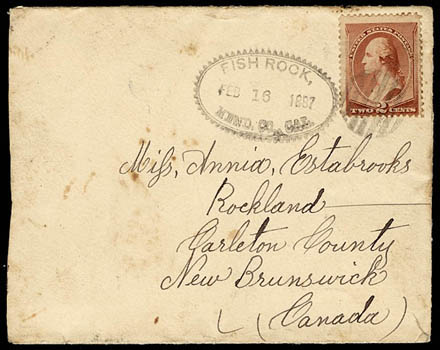 FISH ROCK,
FEB 16 1887
MEND. CO. CAL.
UNITED STATES POSTAGE
2
TWO CENTS
Miss, Annia, Estabrooks
Rockland
Carleton County
New Brunswick
(Canada)